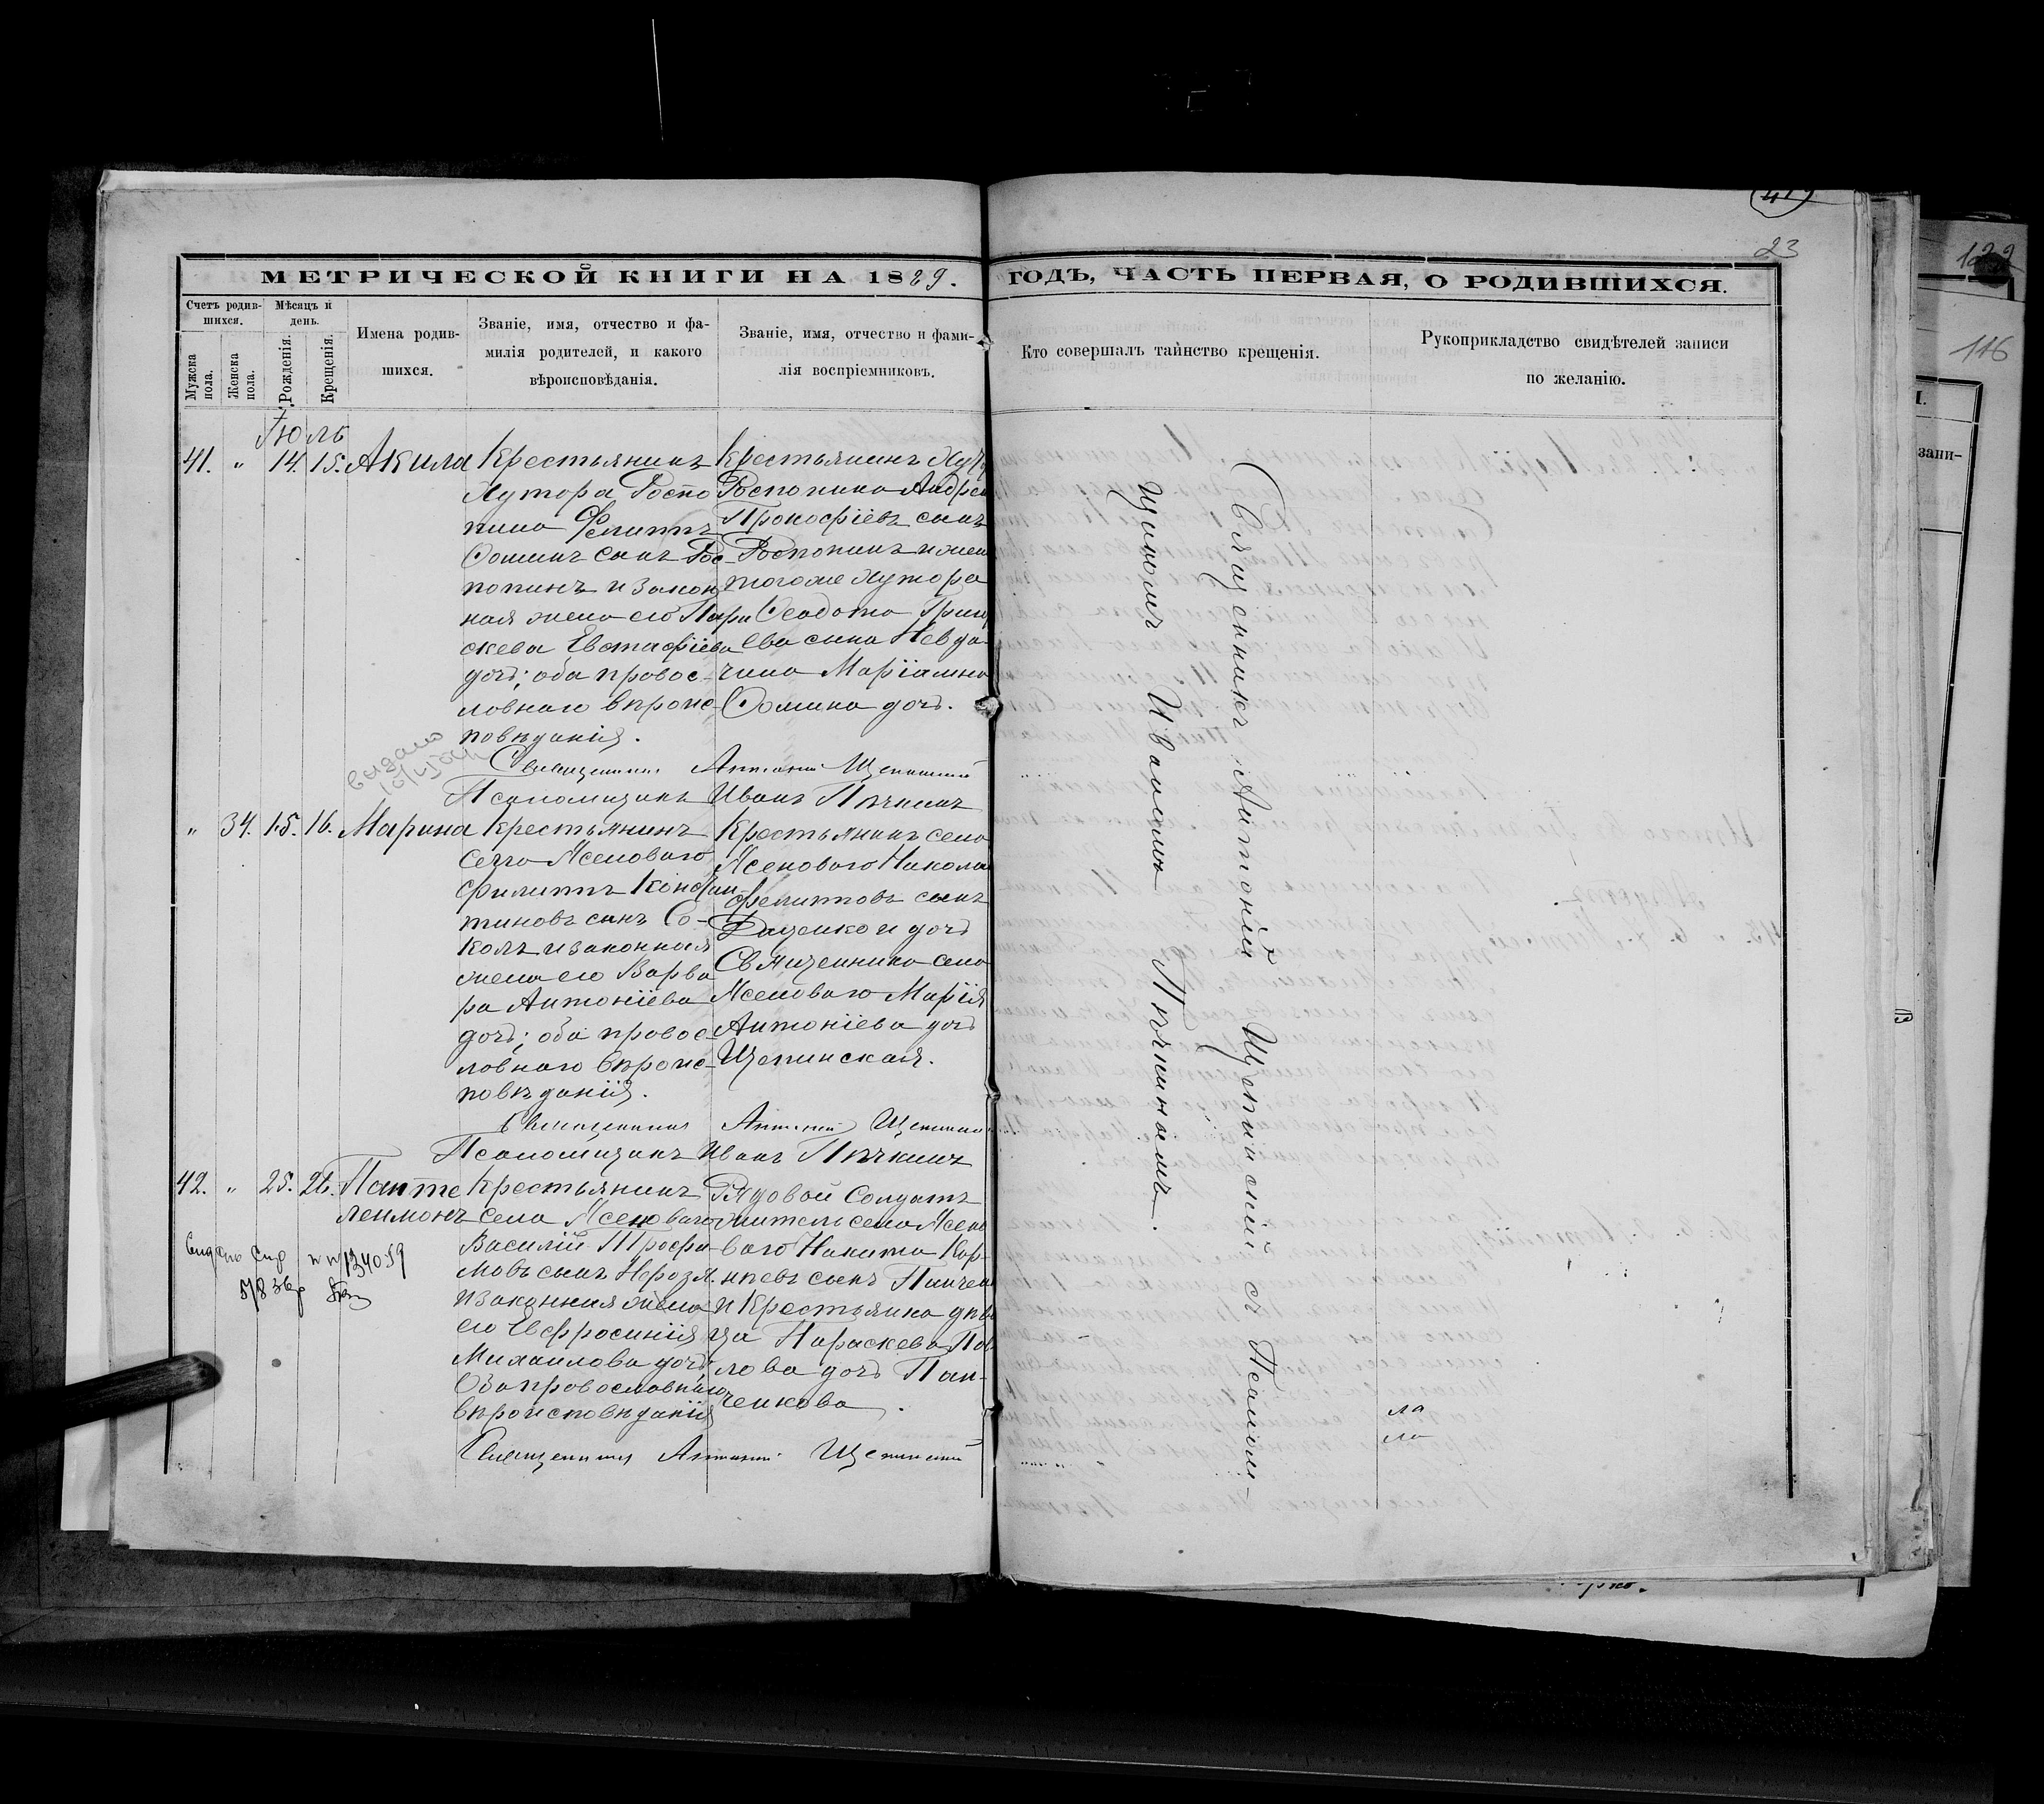 МЕТРИЧЕСКОЙ КНИГИ НА 1889.
ГОДЪ, ЧАСТЬ ПЕРВАЯ, О РОДИВШИХСЯ.
23
116
Счетъ родив-
шихся.
Мужска
пола.
Женска
пола.
Мѣсяцъ и
день.
Рожденія.
Крещенія.
Имена родив-
шихся.
Званіе, имя, отчество и фа-
милія родителей, и какого
вѣроисповѣданія.
Званіе, имя, отчество и фами-
лія воспріемниковъ.
Кто совершалъ таинство крещенія.
Рукоприкладство свидѣтелей записи
по желанію.
зани-
Іюль
41. " 14. 15. Акила
Крестьянинъ
Хутора Роспо
пина Филиппъ
Ѳоминъ сынъ Рос-
попинъ и закон
ная жена его Пара
скева Евстафіева
дочь; оба правос-
лавнаго вѣроис-
повѣданія.
Крестьянинъ Ху
Роспопина Андрей
Прокофіевъ сынъ
Роспопинъ и жена
тогоже Хутора
Ѳеодота Григ
ева сына Невда
чина Маріамна
Ѳомина дочь.
Священникъ Антоній Щепинскій
Псаломщикъ Иванъ Пѣчкинъ
" 34. 15. 16. Марина
Крестьянинъ
Села Ясеноваго
Филиппъ Констан
тиновъ сынъ Со-
колъ и законная
жена его Варва
ра Антоніева
дочь; оба правос-
лавнаго вѣроис-
повѣданія.
Крестьянинъ села
Ясеноваго Никола
Филипповъ сынъ
Даценко и дочь
Священника села
Ясеноваго Марія
Антоніева дочь
Щепинская.
Священникъ Антоній Щепинскій
Псаломщикъ Иванъ Пѣчкинъ
42. " 25. 26. Панте
леимонъ
Крестьянинъ
села Ясеноваго
Василій Трофи-
мовъ сынъ
и законная жена
его Евфросинія
Михаилова дочь;
Оба православнаго
вѣроисповѣданія
Рядовой Солдатъ
житель села Ясено
ваго Никита Кор-
нѣевъ сынъ Панчен
и Крестьянка дѣви
ца Параскева Пав
лова дочь Пан-
ченкова.
Священникъ Антоній Щепинскій
Священникъ Антоній Щепинскій съ Псалом-
щикомъ Иваномъ Пѣчкинымъ.